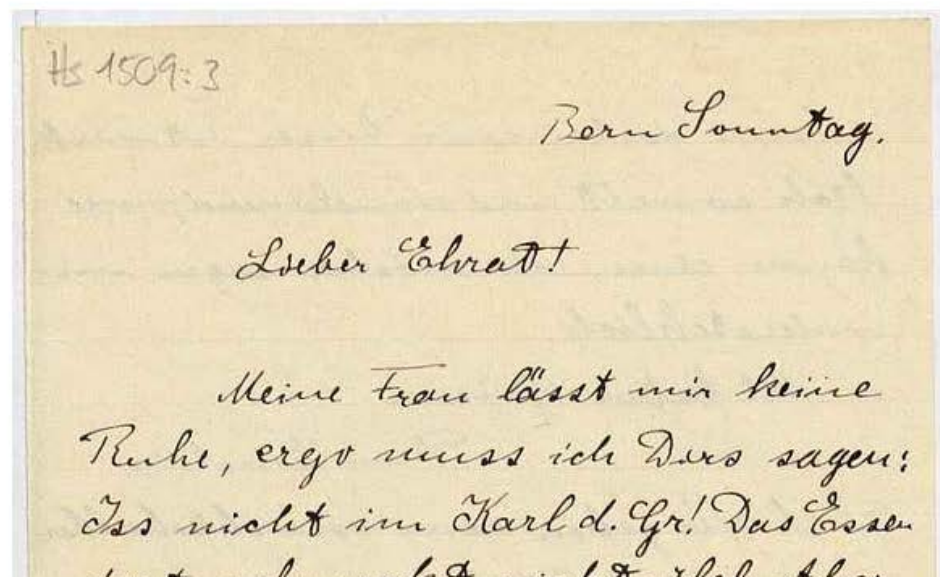 Hs 1509:3
Bern Sonntag.
Lieber Ehrat!
Meine Frau lässt mir keine
Ruhe, ergo muss ich Dirs sagen:
Iss nicht im Karl d. Gr! Das Essen